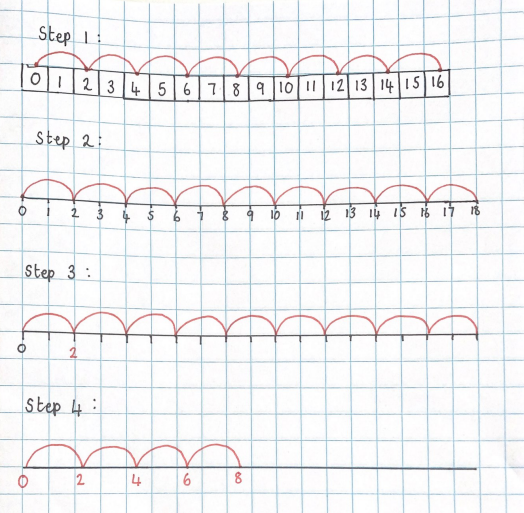 Step 1:
0 1 2 3 4 5 6 7 8 9 10 11 12 13 14 15 16
Step 2:
0 1 2 3 4 5 6 7 8 9 10 11 12 13 14 15 16 17 18
Step 3:
0 2
Step 4:
0 2 4 6 8